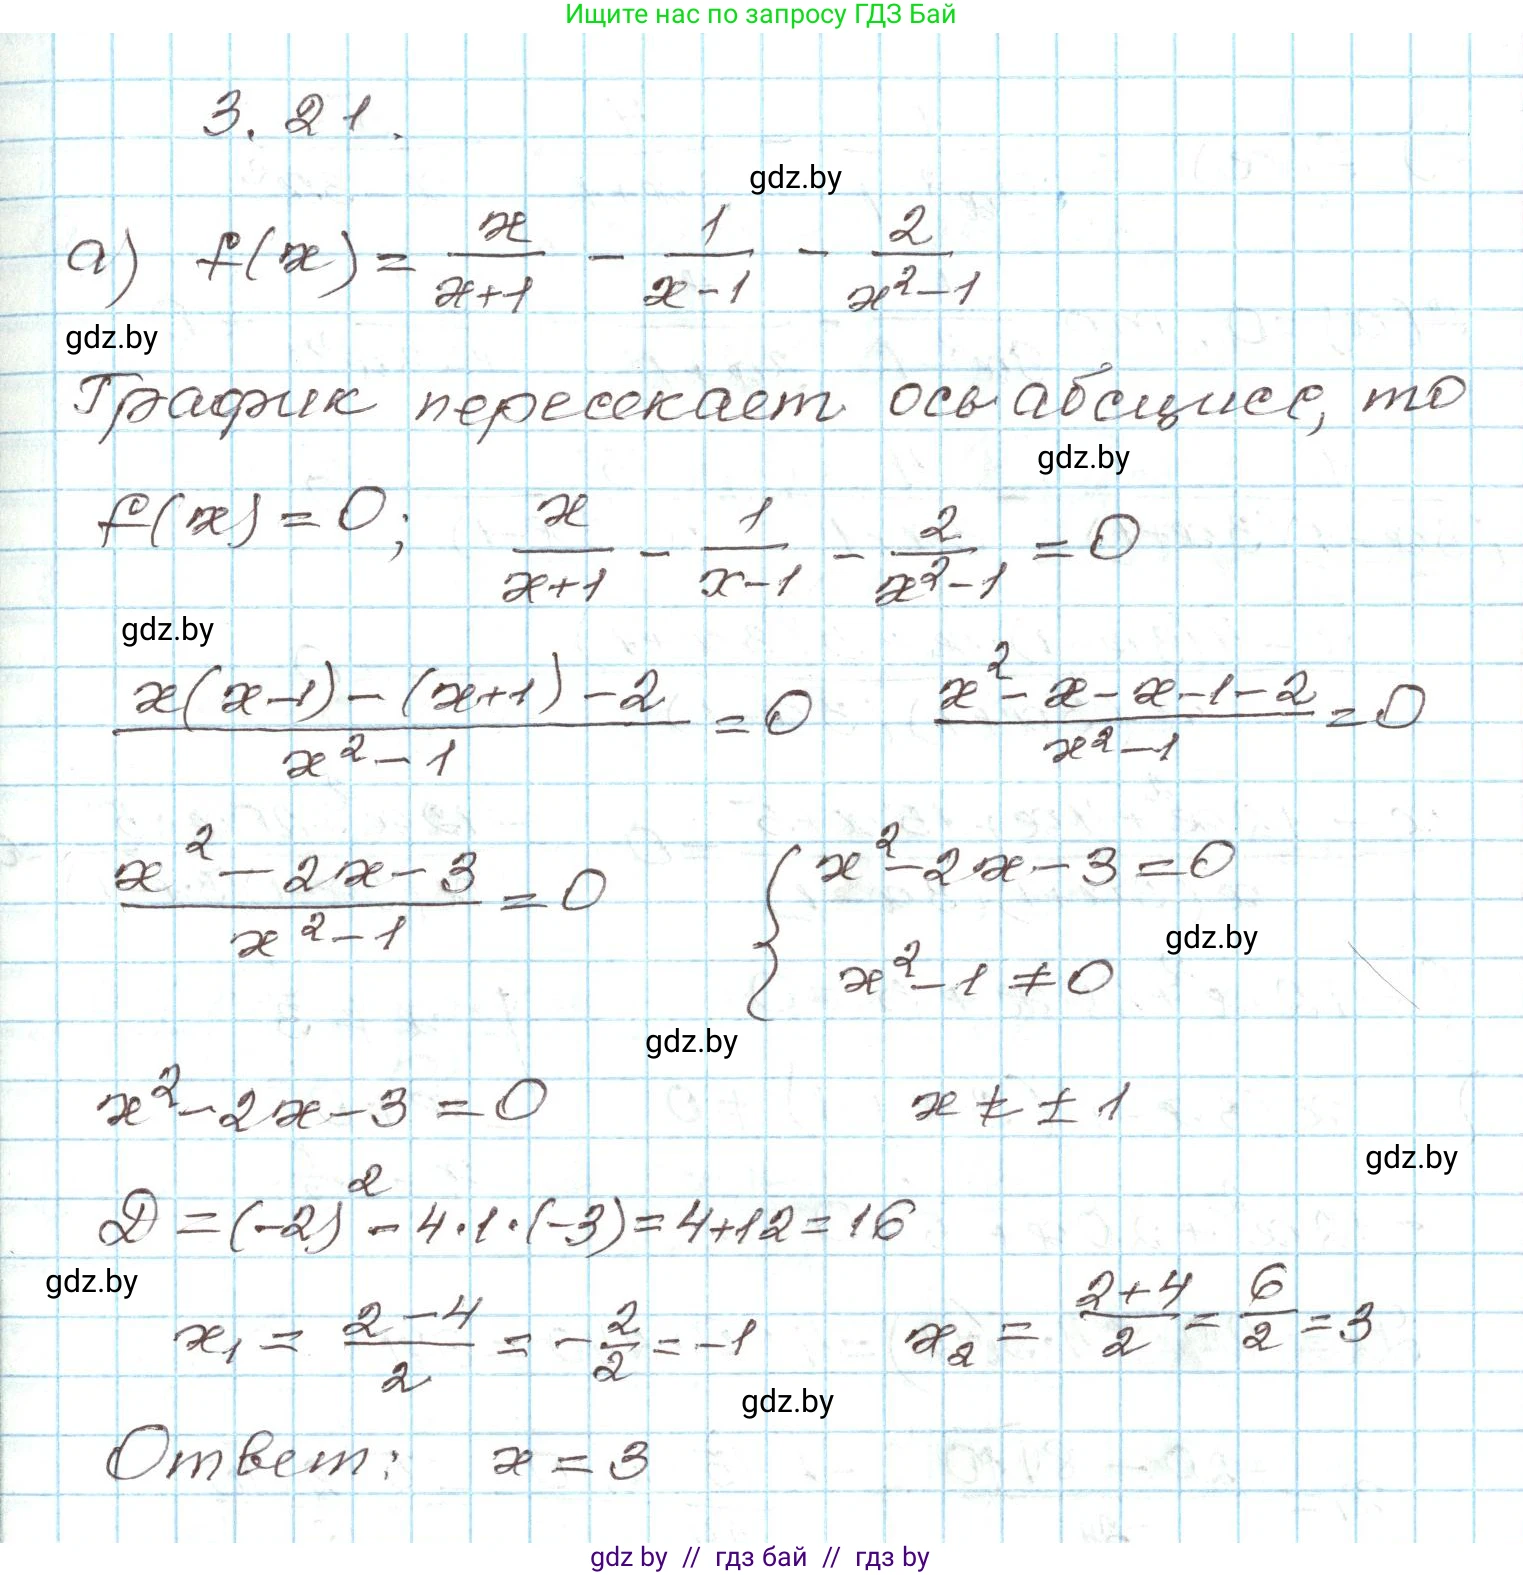 Ищите нас по запросу ГДЗ Бай
3.21.
gdz.by
а) f(x) = x/(x+1) - 1/(x-1) - 2/(x²-1)
gdz.by
График пересекает ось абсцисс, то
gdz.by
f(x) = 0; x/(x+1) - 1/(x-1) - 2/(x²-1) = 0
gdz.by
(x(x-1) - (x+1) - 2)/(x²-1) = 0 (x² - x - x - 1 - 2)/(x²-1) = 0
(x² - 2x - 3)/(x²-1) = 0 { x² - 2x - 3 = 0
gdz.by
x² - 1 ≠ 0
gdz.by
x² - 2x - 3 = 0 x ≠ ±1
gdz.by
D = (-2)² - 4·1·(-3) = 4+12 = 16
gdz.by
x₁ = (2-4)/2 = -2/2 = -1 x₂ = (2+4)/2 = 6/2 = 3
gdz.by
Ответ: x = 3
gdz by // гдз бай // гдз by